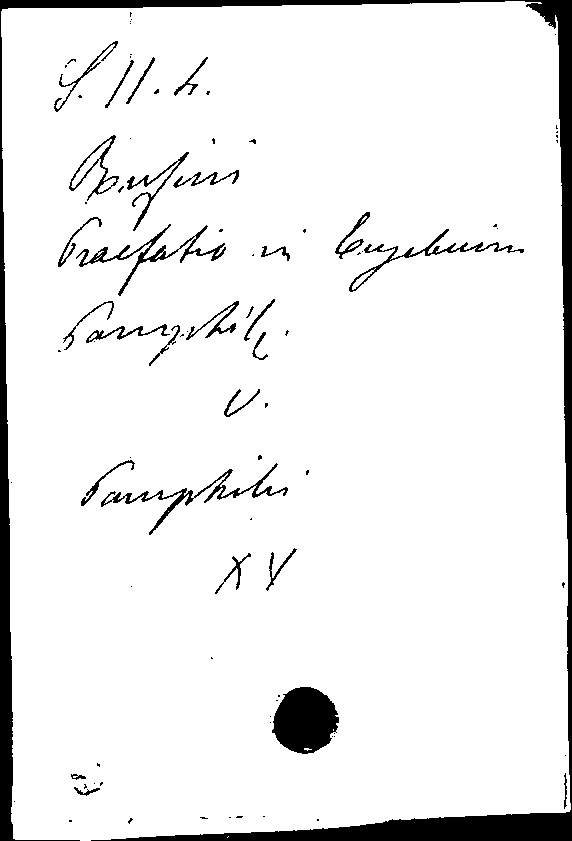 S. II. 4.
Rufini
Praefatio in Eusebium
Pamphili.
v.
Pamphilus
XV